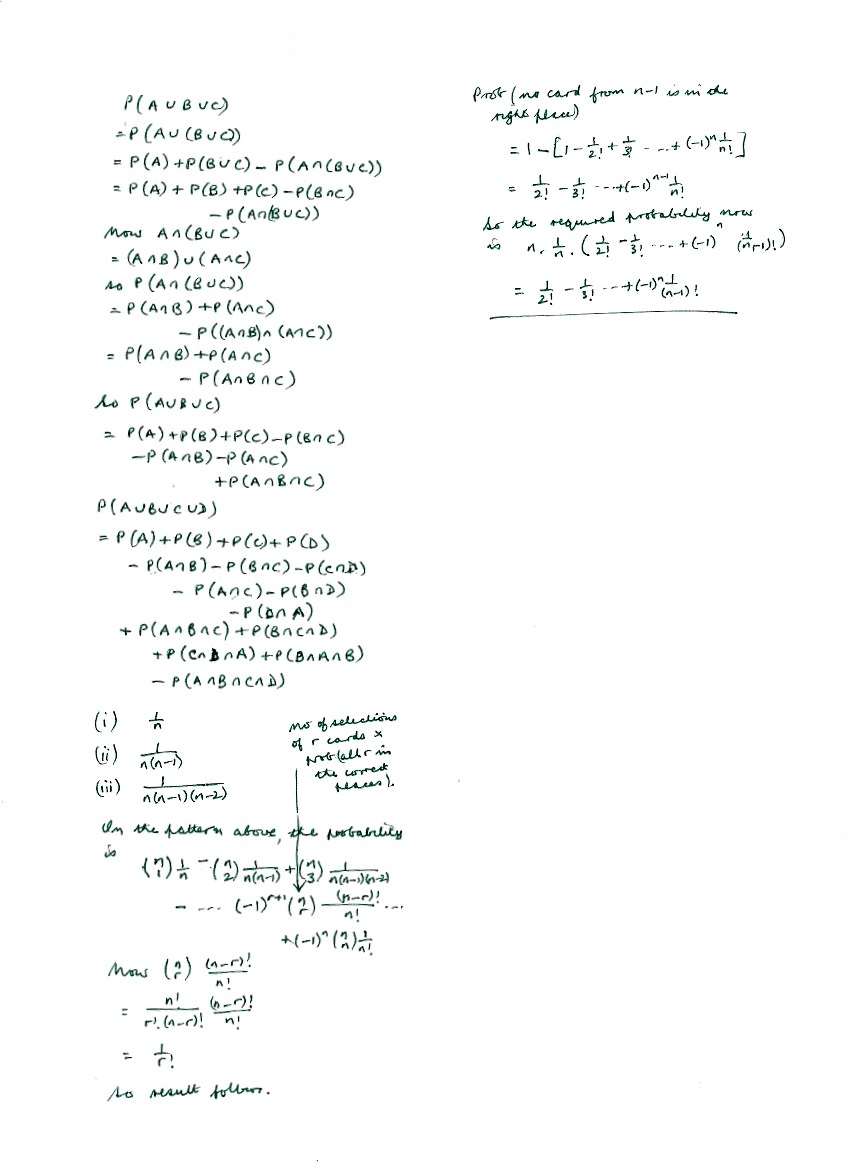 P(A ∪ B ∪ C)
= P(A ∪ (B ∪ C))
= P(A) + P(B ∪ C) − P(A ∩ (B ∪ C))
= P(A) + P(B) + P(C) − P(B ∩ C)
− P(A ∩ (B ∪ C))
Now A ∩ (B ∪ C)
= (A ∩ B) ∪ (A ∩ C)
so P(A ∩ (B ∪ C))
= P(A ∩ B) + P(A ∩ C)
− P((A ∩ B) ∩ (A ∩ C))
= P(A ∩ B) + P(A ∩ C)
− P(A ∩ B ∩ C)
So P(A ∪ B ∪ C)
= P(A) + P(B) + P(C) − P(B ∩ C)
− P(A ∩ B) − P(A ∩ C)
+ P(A ∩ B ∩ C)
P(A ∪ B ∪ C ∪ D)
= P(A) + P(B) + P(C) + P(D)
− P(A ∩ B) − P(B ∩ C) − P(C ∩ D)
− P(A ∩ C) − P(B ∩ D)
− P(D ∩ A)
+ P(A ∩ B ∩ C) + P(B ∩ C ∩ D)
+ P(C ∩ D ∩ A) + P(B ∩ A ∩ B)
− P(A ∩ B ∩ C ∩ D)
(i) 1/n
(ii) 1/n(n−1)
(iii) 1/n(n−1)(n−2)
no of selections
of r cards ×
prob (all r in
the correct
places).
In the pattern above, the probability
is
(n 1) 1/n − (n 2) 1/n(n−1) + (n 3) 1/n(n−1)(n−2)
− .... (−1)^{r+1} (n r) (n−r)!/n! ...
+ (−1)^n (n n) 1/n!
Now (n r) (n−r)!/n!
= n!/r!(n−r)! (n−r)!/n!
= 1/r!
So result follows.
Prob (no card from n−1 is in the
right place)
= 1 − [1 − 1/2! + 1/3! − ... + (−1)^n 1/n!]
= 1/2! − 1/3! ... + (−1)^{n−1} 1/n!
So the required probability now
is n. 1/n. (1/2! − 1/3! .... + (−1)^n 1/(n−1)!)
= 1/2! − 1/3! ... + (−1)^n 1/(n−1)!